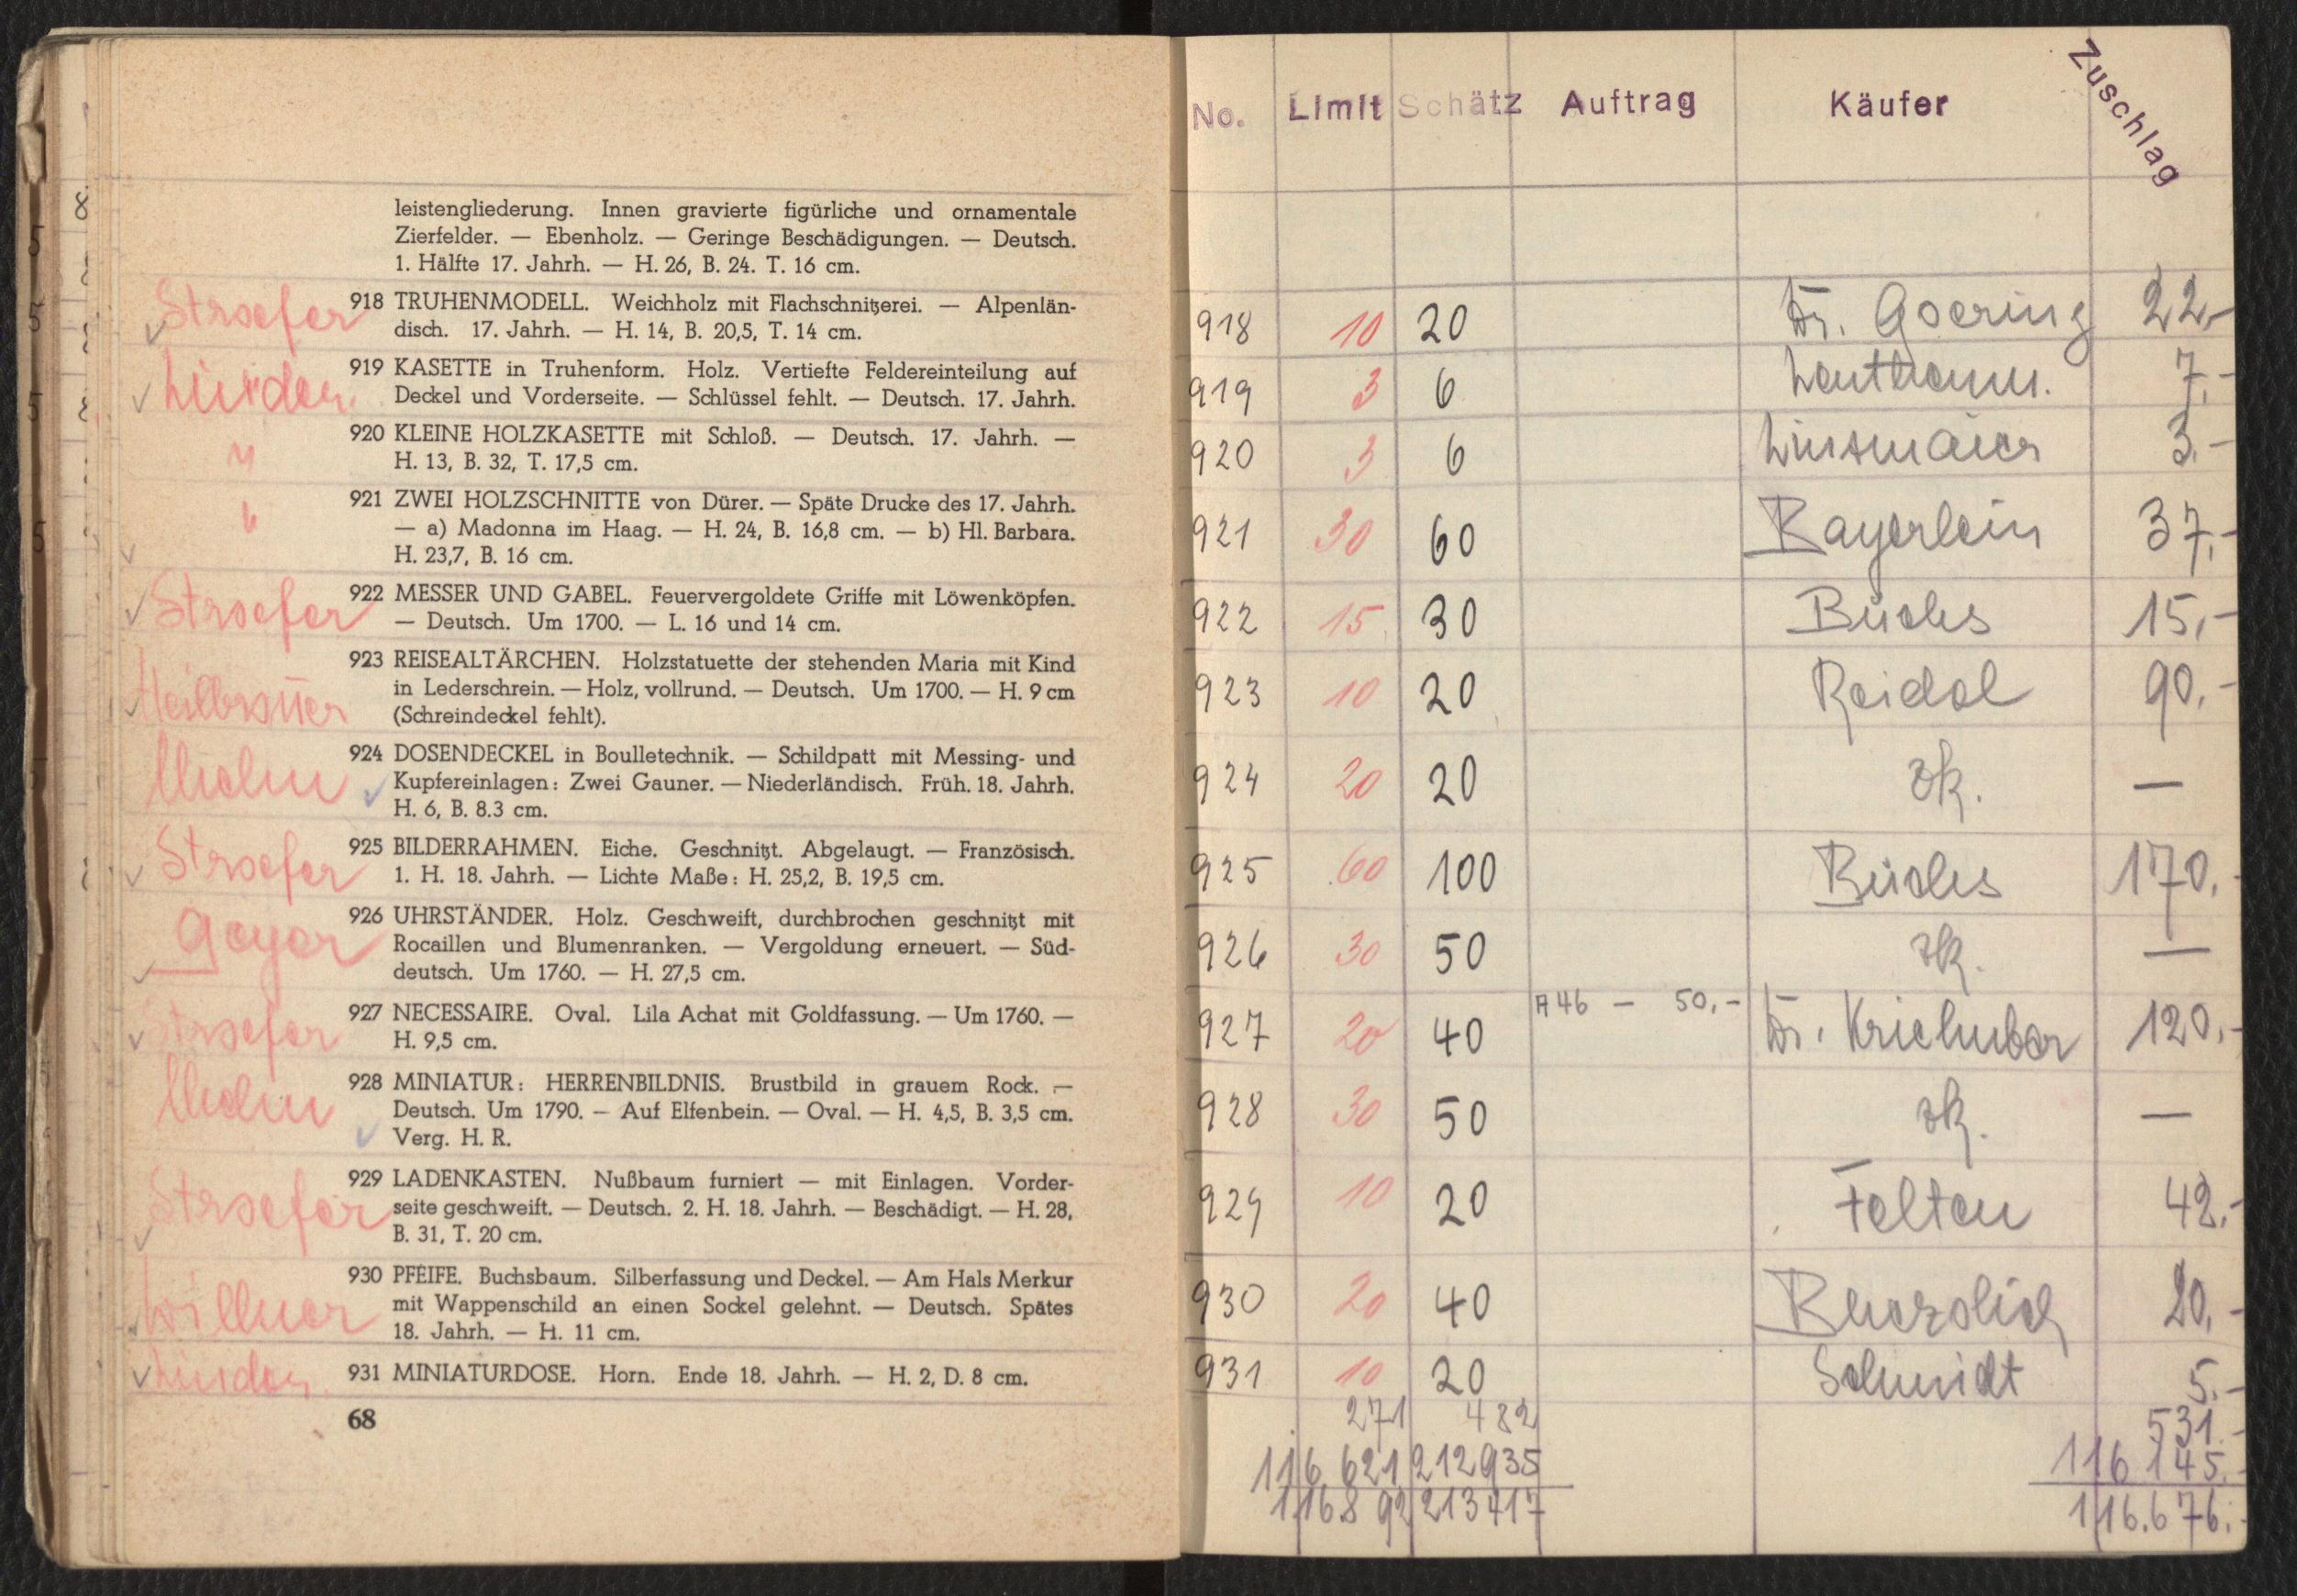 8
leistengliederung. Innen gravierte figürliche und ornamentale
Zierfelder. — Ebenholz. — Geringe Beschädigungen. — Deutsch.
1. Hälfte 17. Jahrh. — H. 26, B. 24. T. 16 cm.
Stroefer 918 TRUHENMODELL. Weichholz mit Flachschnitzerei. — Alpenlän-
disch. 17. Jahrh. — H. 14, B. 20,5, T. 14 cm.
919 KASETTE in Truhenform. Holz. Vertiefte Feldereinteilung auf
Deckel und Vorderseite. — Schlüssel fehlt. — Deutsch. 17. Jahrh.
" 920 KLEINE HOLZKASETTE mit Schloß. — Deutsch. 17. Jahrh. —
H. 13, B. 32, T. 17,5 cm.
" 921 ZWEI HOLZSCHNITTE von Dürer. — Späte Drucke des 17. Jahrh.
— a) Madonna im Haag. — H. 24, B. 16,8 cm. — b) Hl. Barbara.
H. 23,7, B. 16 cm.
Stroefer 922 MESSER UND GABEL. Feuervergoldete Griffe mit Löwenköpfen.
— Deutsch. Um 1700. — L. 16 und 14 cm.
923 REISEALTÄRCHEN. Holzstatuette der stehenden Maria mit Kind
in Lederschrein. — Holz, vollrund. — Deutsch. Um 1700. — H. 9 cm
(Schreindeckel fehlt).
924 DOSENDECKEL in Boulletechnik. — Schildpatt mit Messing- und
Kupfereinlagen: Zwei Gauner. — Niederländisch. Früh. 18. Jahrh.
H. 6, B. 8.3 cm.
Stroefer 925 BILDERRAHMEN. Eiche. Geschnitzt. Abgelaugt. — Französisch.
1. H. 18. Jahrh. — Lichte Maße: H. 25,2, B. 19,5 cm.
Geyer 926 UHRSTÄNDER. Holz. Geschweift, durchbrochen geschnitzt mit
Rocaillen und Blumenranken. — Vergoldung erneuert. — Süd-
deutsch. Um 1760. — H. 27,5 cm.
Stroefer 927 NECESSAIRE. Oval. Lila Achat mit Goldfassung. — Um 1760. —
H. 9,5 cm.
928 MINIATUR: HERRENBILDNIS. Brustbild in grauem Rock. —
Deutsch. Um 1790. — Auf Elfenbein. — Oval. — H. 4,5, B. 3,5 cm.
Verg. H. R.
Stroefer 929 LADENKASTEN. Nußbaum furniert — mit Einlagen. Vorder-
seite geschweift. — Deutsch. 2. H. 18. Jahrh. — Beschädigt. — H. 28,
B. 31, T. 20 cm.
Willner 930 PFEIFE. Buchsbaum. Silberfassung und Deckel. — Am Hals Merkur
mit Wappenschild an einen Sockel gelehnt. — Deutsch. Spätes
18. Jahrh. — H. 11 cm.
931 MINIATURDOSE. Horn. Ende 18. Jahrh. — H. 2, D. 8 cm.
68
No. Limit Schätz Auftrag Käufer Zuschlag
918 10 20 Dr. Goering 22,-
919 3 6 7,-
920 3 6 Linsmaier 3.-
921 30 60 Bayerlein 37,-
922 15 30 Buchs 15,-
923 10 20 Reidel 90,-
924 20 20 zk. —
925 60 100 Buchs 170,-
926 30 50 zk. —
927 20 40 A 46 — 50,- Dr. Kriehuber 120,-
928 30 50 zk. —
929 10 20 Felten 42,-
930 20 40 20,-
931 10 20 Schmidt 5.-
271 482 531.-
116 621 212935 116 145.-
116892 213417 116.676.-